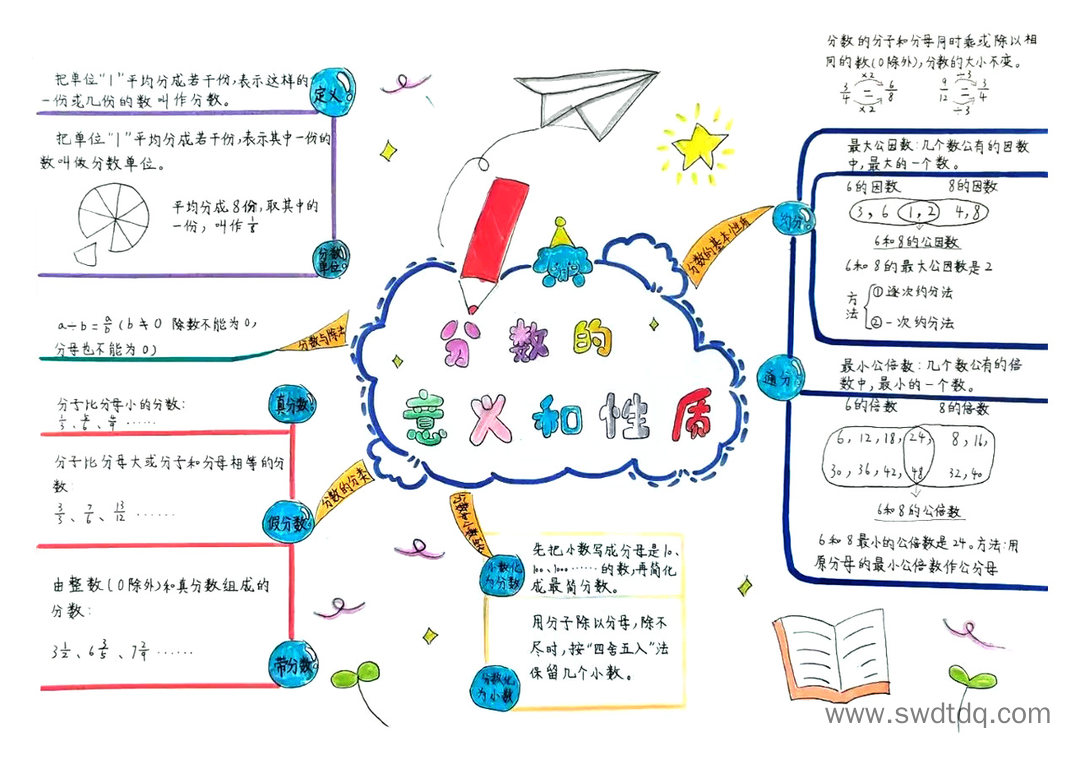 分数的
意义和性质
定义
把单位“1”平均分成若干份,表示这样的
一份或几份的数叫作分数。
把单位“1”平均分成若干份,表示其中一份的
数叫做分数单位。
平均分成8份,取其中的
一份,叫作1/8
分数
单位
分数与除法
a÷b=a/b(b≠0 除数不能为0,
分母也不能为0)
分数的分类
真分数
分子比分母小的分数:
假分数
分子比分母大或分子和分母相等的分
数:
3/3、7/6、13/12 ······
由整数(0除外)和真分数组成的
分数:
带分数
小数化
为分数
先把小数写成分母是10、
100、1000······的数,再简化
成最简分数。
用分子除以分母,除不
尽时,按“四舍五入”法
保留几个小数。
分数化
为小数
分数的基本性质
分数的分子和分母同时乘或除以相
同的数(0除外),分数的大小不变。
×2 ÷3
3/4 = 6/8 9/12 = 3/4
×2 ÷3
约分
最大公因数:几个数公有的因数
中,最大的一个数。
6的因数 8的因数
3,6 1,2 4,8
6和8的公因数
6和8的最大公因数是2
方法
①逐次约分法
②一次约分法
通分
最小公倍数:几个数公有的倍
数中,最小的一个数。
6的倍数 8的倍数
6,12,18, 24, 8,16,
30,36,42, 48 32,40
6和8的公倍数
6和8最小的公倍数是24。方法:用
原分母的最小公倍数作公分母
www.swdtdq.com